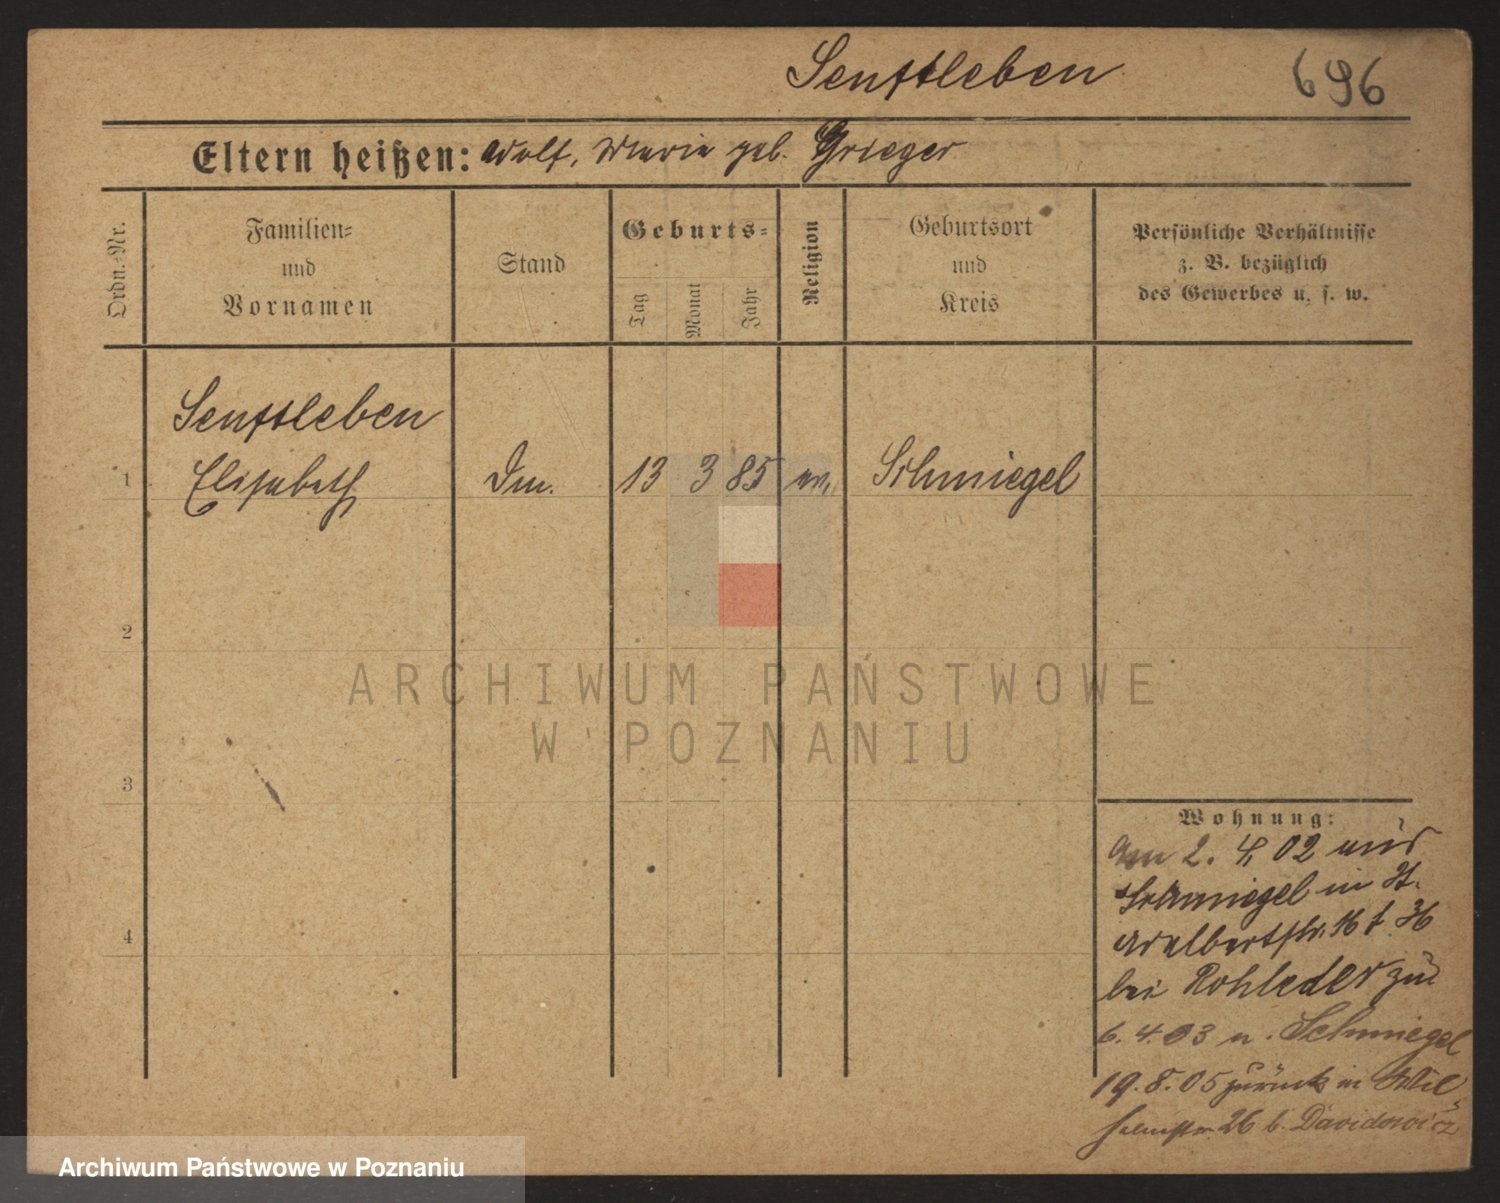 Senftleben 696
Eltern heißen: Adolf, Maria geb. Grieger
Ordn.-Nr.
Familien-
und
Vornamen
Stand
Geburts-
Tag
Monat
Jahr
Religion
Geburtsort
und
Kreis
Persönliche Verhältnisse
z. B. bezüglich
des Gewerbes u. s. w.
Senftleben
1 Elisabeth 13 3 85 ev. Schmiegel
2
3
4
Wohnung:
Am 2. 4. 02 aus
Schmiegel in St.
Adalbertstr. 16
bei Rohleder
6. 4. 03 n. Schmiegel
19. 8. 05 zurück in Wil-
helmstr 26 b. Davidowicz
ARCHIWUM PAŃSTWOWE
W POZNANIU
Archiwum Państwowe w Poznaniu